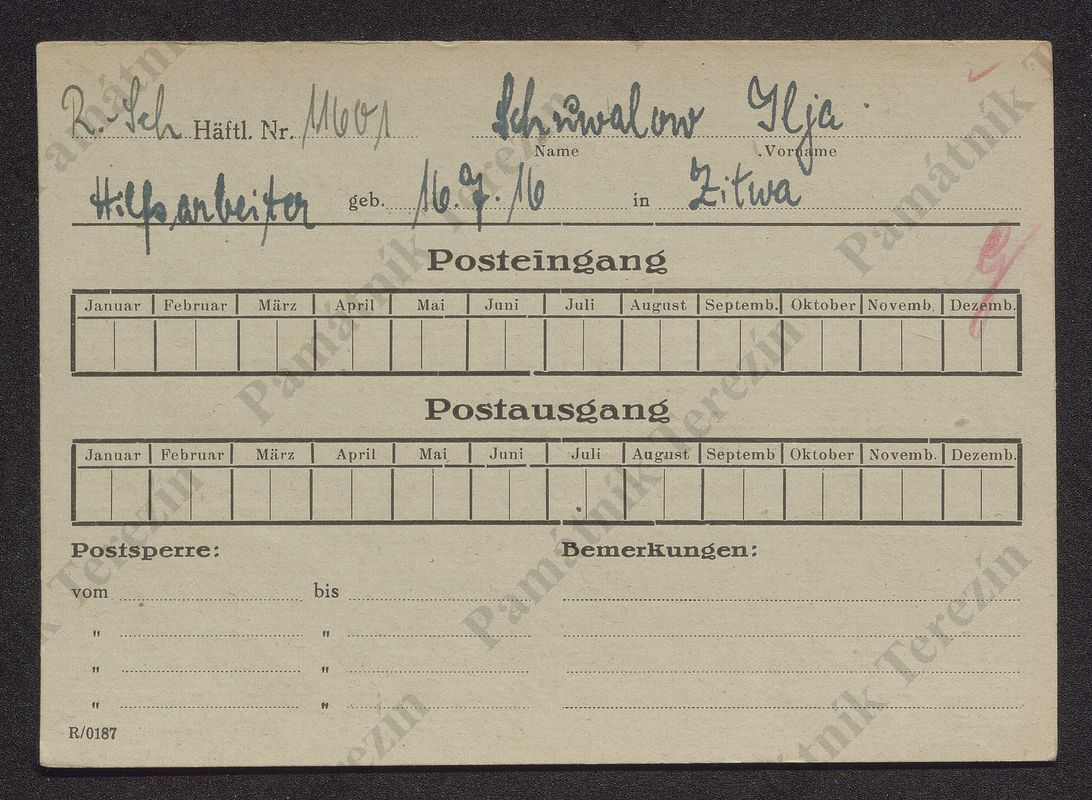 R.-Sch Häftl. Nr. 11601 Schuwalow Ilja
Name Vorname
Hilfsarbeiter geb. 16.7.16 in Zitwa
Posteingang
Januar Februar März April Mai Juni Juli August Septemb. Oktober Novemb. Dezemb.
Postausgang
Januar Februar März April Mai Juni Juli August Septemb Oktober Novemb. Dezemb.
Postsperre: Bemerkungen:
vom bis
" "
" "
" "
R/0187
Památník Terezín